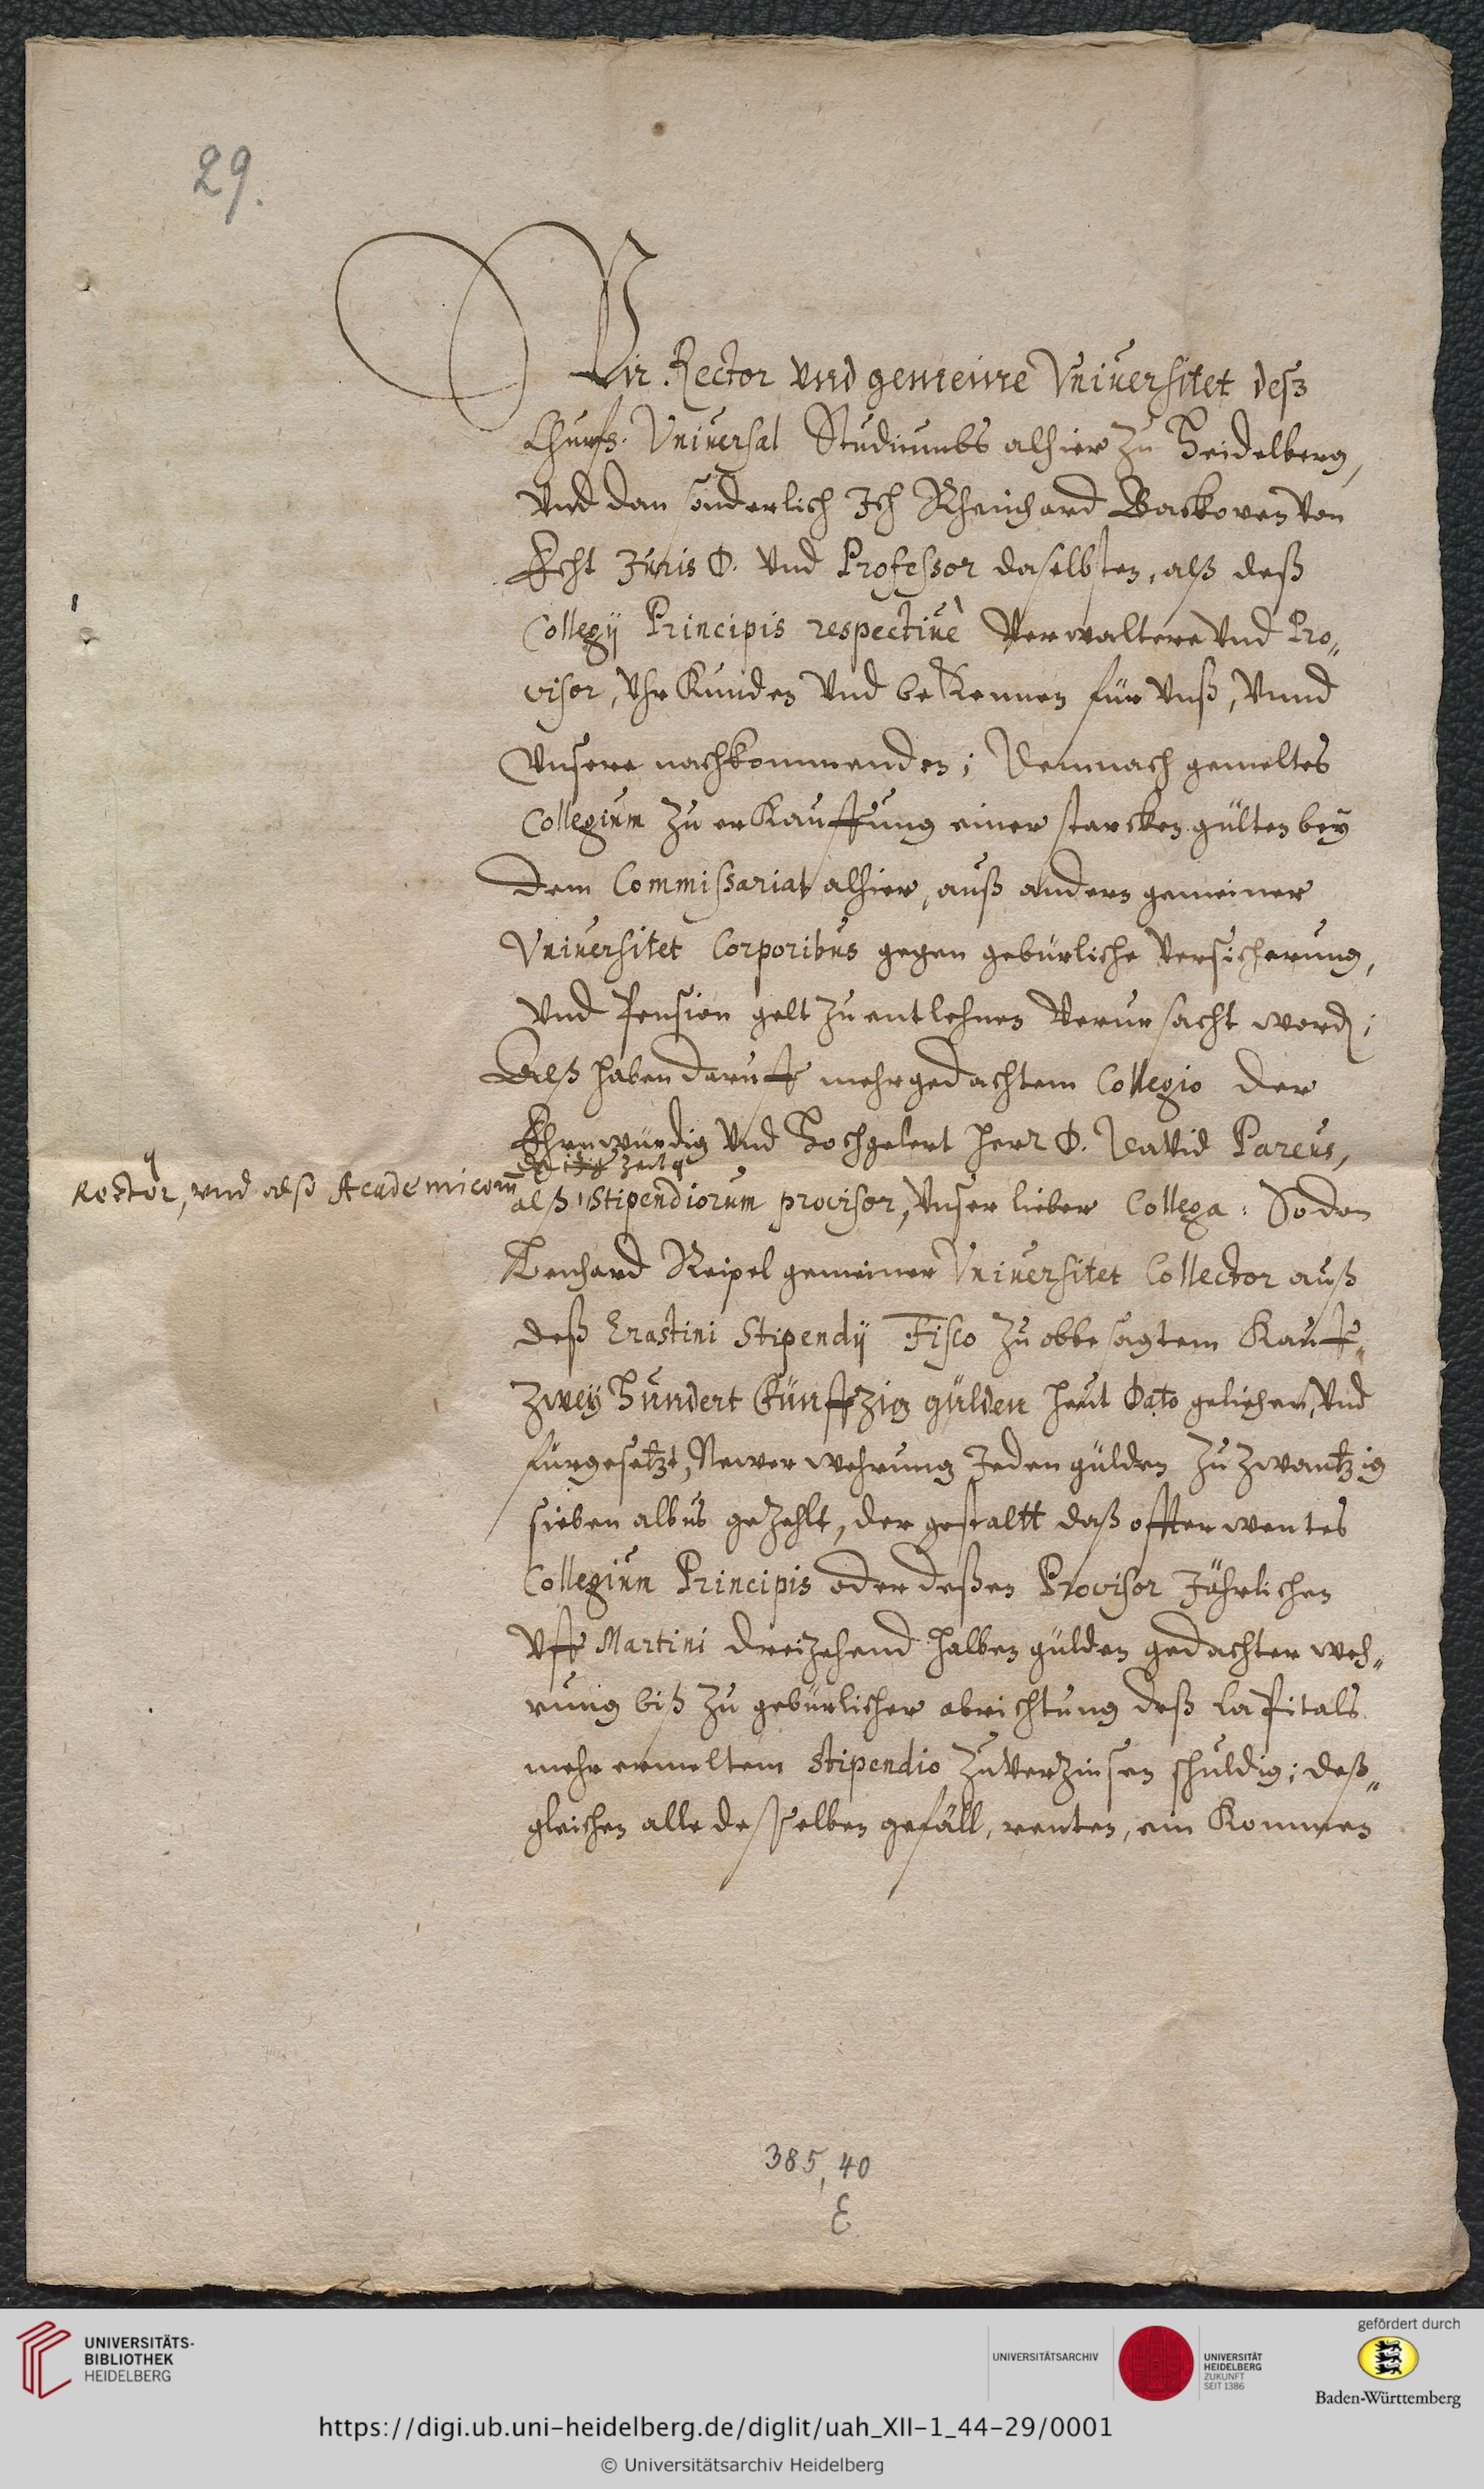 29.
Wir Rector Vnd gemeine Vniuersitet deß
Churfs. Vniuersal Studiumbs alhier zu Heidelberg,
Vnd dan sonderlich Ich Rheinhard Backoven Von
Echt Juris D. Vnd Professor daselbsten, alß deß
Collegij Principis respectiuè Verwaltere Vnd Pro„
visor, Vhrkunden Vnd bekennen für Vnß, Vnnd
Vnsere nachkommenden; Demnach gemeltes
Collegium zu erkauffung einer starcken gülten bey
dem Commissariat alhier, auß andern gemeiner
Vniuersitet Corporibus gegen gebürliche Versicherung,
Vnd Pension gelt zu entlehnen Verursacht word;
Alß haben daruff mehrgedachtem Collegio der
Ehrnwürdig Vnd Hochgelert Herr D. Dauid Pareus,
Rector, vnd alß Academicorum
alß Stipendiorum provisor, Vnser lieber Collega. So dan
Lenhard Reipel gemeiner Vniuersitet Collector auß
deß Erastini Stipendij Fisco zu obbesagtem Kauff„
Zwey Hundert Fünffzig gülden heut Dato geliehen, Vnd
fürgesetzt, Newer wehrung Jeden gülden zu zwantzig
sieben albus gezehlt, der gestaltt daß offterwentes
Collegium Principis oder deßen Provisor Jährlichen
Vff Martini dreizehend halben gülden gedachter weh„
rung biß zu gebürlicher abrichtung deß Capitals
mehr ermeltem Stipendio zu Verzinsen schuldig; deß„
gleichen alle desselben gefäll, renten, ein Kommen
385, 40
E
UNIVERSITÄTS-
BIBLIOTHEK
HEIDELBERG
UNIVERSITÄTSARCHIV
UNIVERSITÄT
HEIDELBERG
ZUKUNFT
SEIT 1386
gefördert durch
Baden-Württemberg
https://digi.ub.uni-heidelberg.de/diglit/uah_XII-1_44-29/0001
© Universitätsarchiv Heidelberg